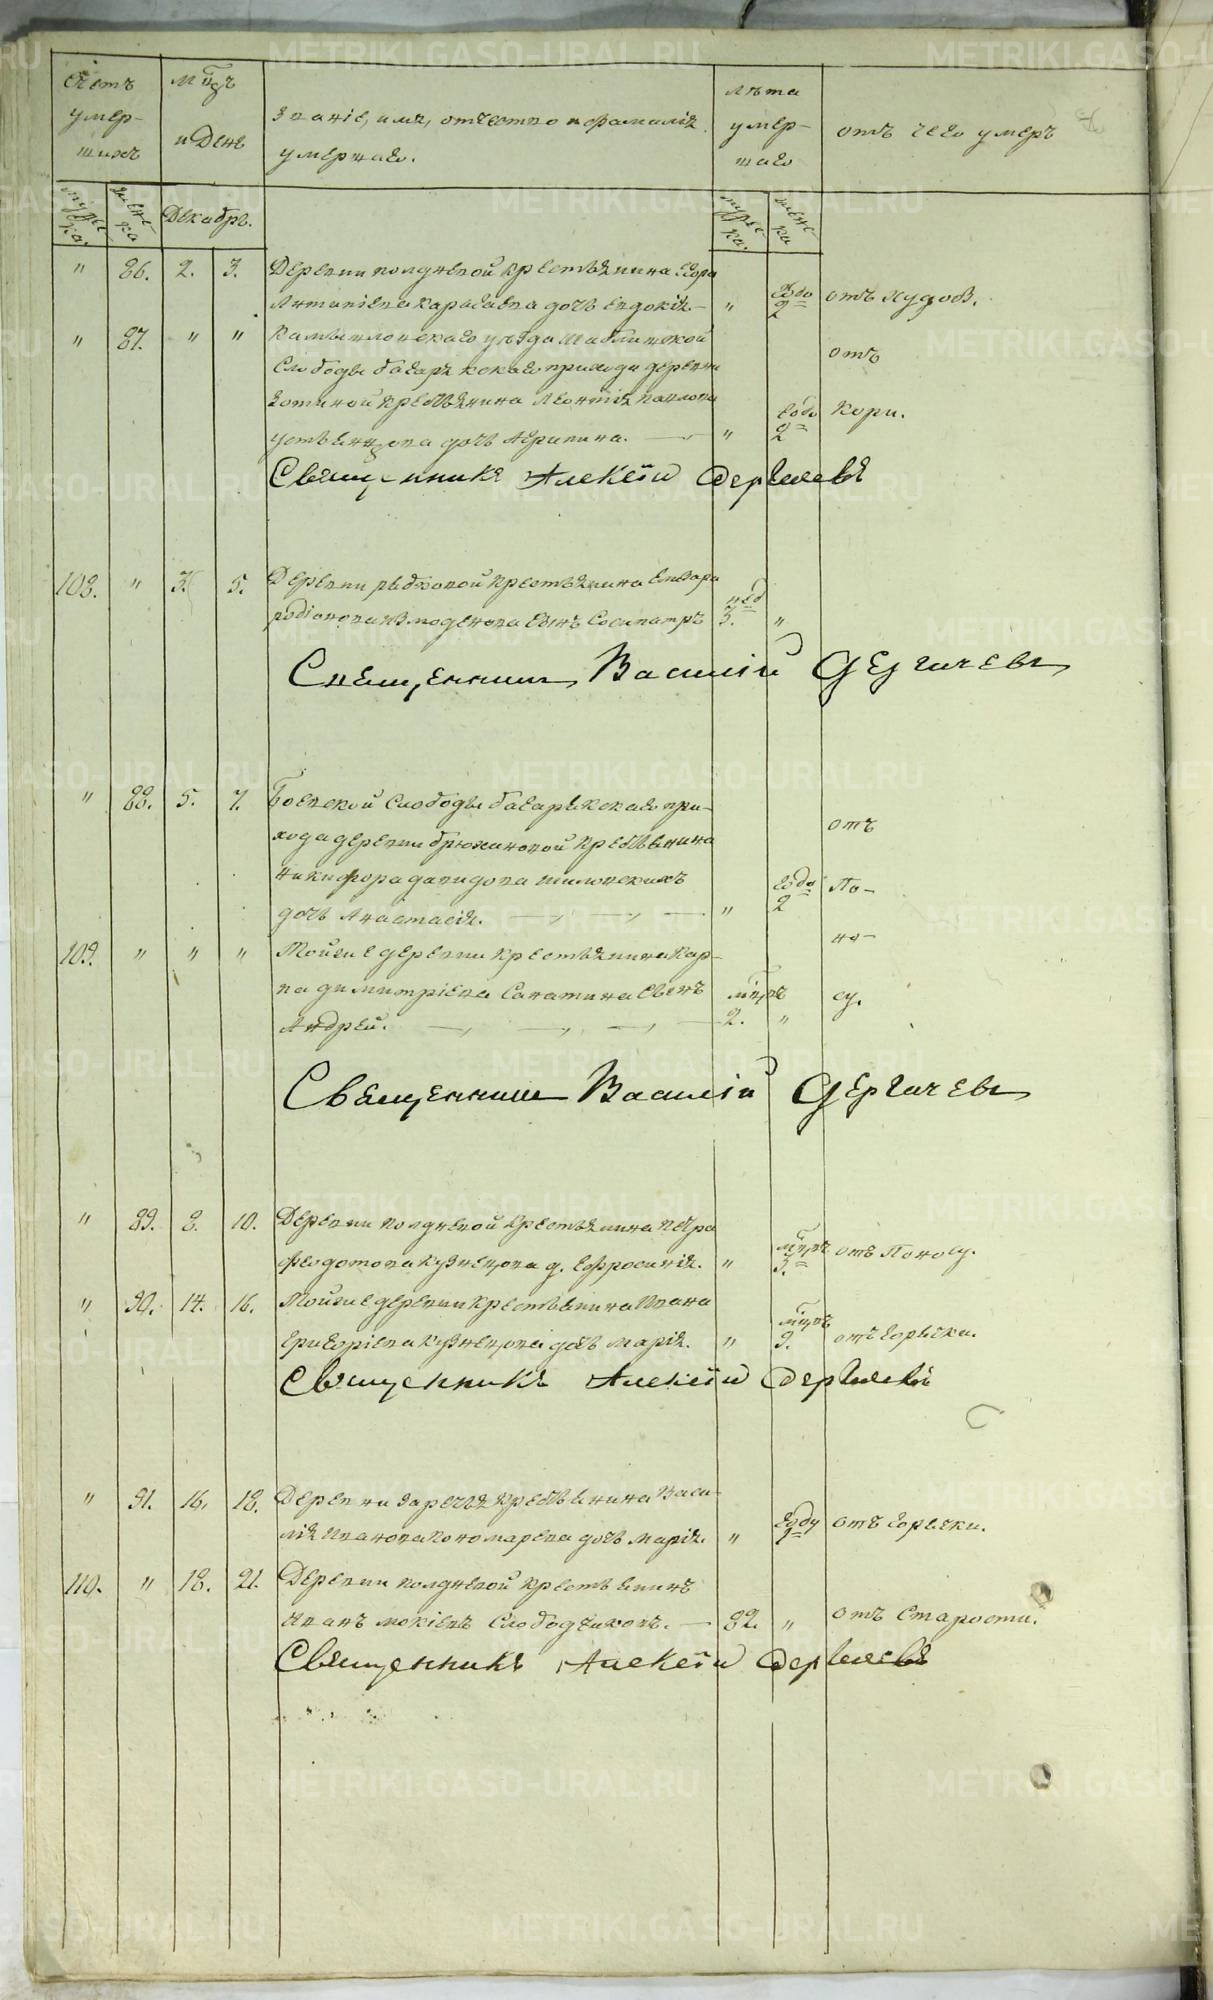 Счетъ
умер-
шихъ
Мцъ
и День
Званіе, имя, отчество и фамилія
умершаго.
Лѣта
умер-
шаго
отъ чего умеръ
мужес
ка.
женс
ка
Декабрь.
мужес
ка.
женс
ка
" 86. 2. 3. Деревни полдневой крестьянина Егора
Антипіева Карагаева дочь Евдокія. — " года 2 отъ худоб.
" 87. " " Камышловскаго уѣзда
Слободы багарякскаго прихода деревни отъ
зотиной крестьянина Леонтія Павлова
Устьянцова дочь Агрипина. — " года 2 Кори.
Священникъ Алексѣй Дергачевъ
108. " 3. 5. Деревни рыбховой крестьянина
родіонова сынъ Сосипатръ нед 3. "
Священникъ Василій Дергачевъ
" 88. 5. 7. Боевской Слободы багарякскаго при-
хода деревни брюхановой крестьянина отъ
никифора давидова шиловскихъ
дочь Анастасія. — " года 2 По-
но-
109. " " " Тойже деревни крестьянина Кар-
па димитріева Сапатина сынъ
Андрей. — мцъ 2. " су.
Священникъ Василій Дергачевъ
" 89. 8. 10. Деревни полдневой крестьянина петра
феодотова кузнецова д. Ефросинія. " мцъ 3. отъ Поносу.
" 90. 14. 16. Тойже деревни крестьянина Ивана
григоріева кузнецова дочь марія. " мцъ 9. отъ горячки.
Священникъ Алексѣй Дергачевъ
" 91. 16. 18. Деревни заречья крестьянина Васи-
лія Иванова пономарева дочь марія. " году 1 отъ горячки.
110. " 18. 21. Деревни полдневой крестьянинъ
Иванъ мокіевъ Слободчиковъ. — 82. " отъ Старости.
Священникъ Алексѣй Дергачевъ
METRIKI.GASO-URAL.RU